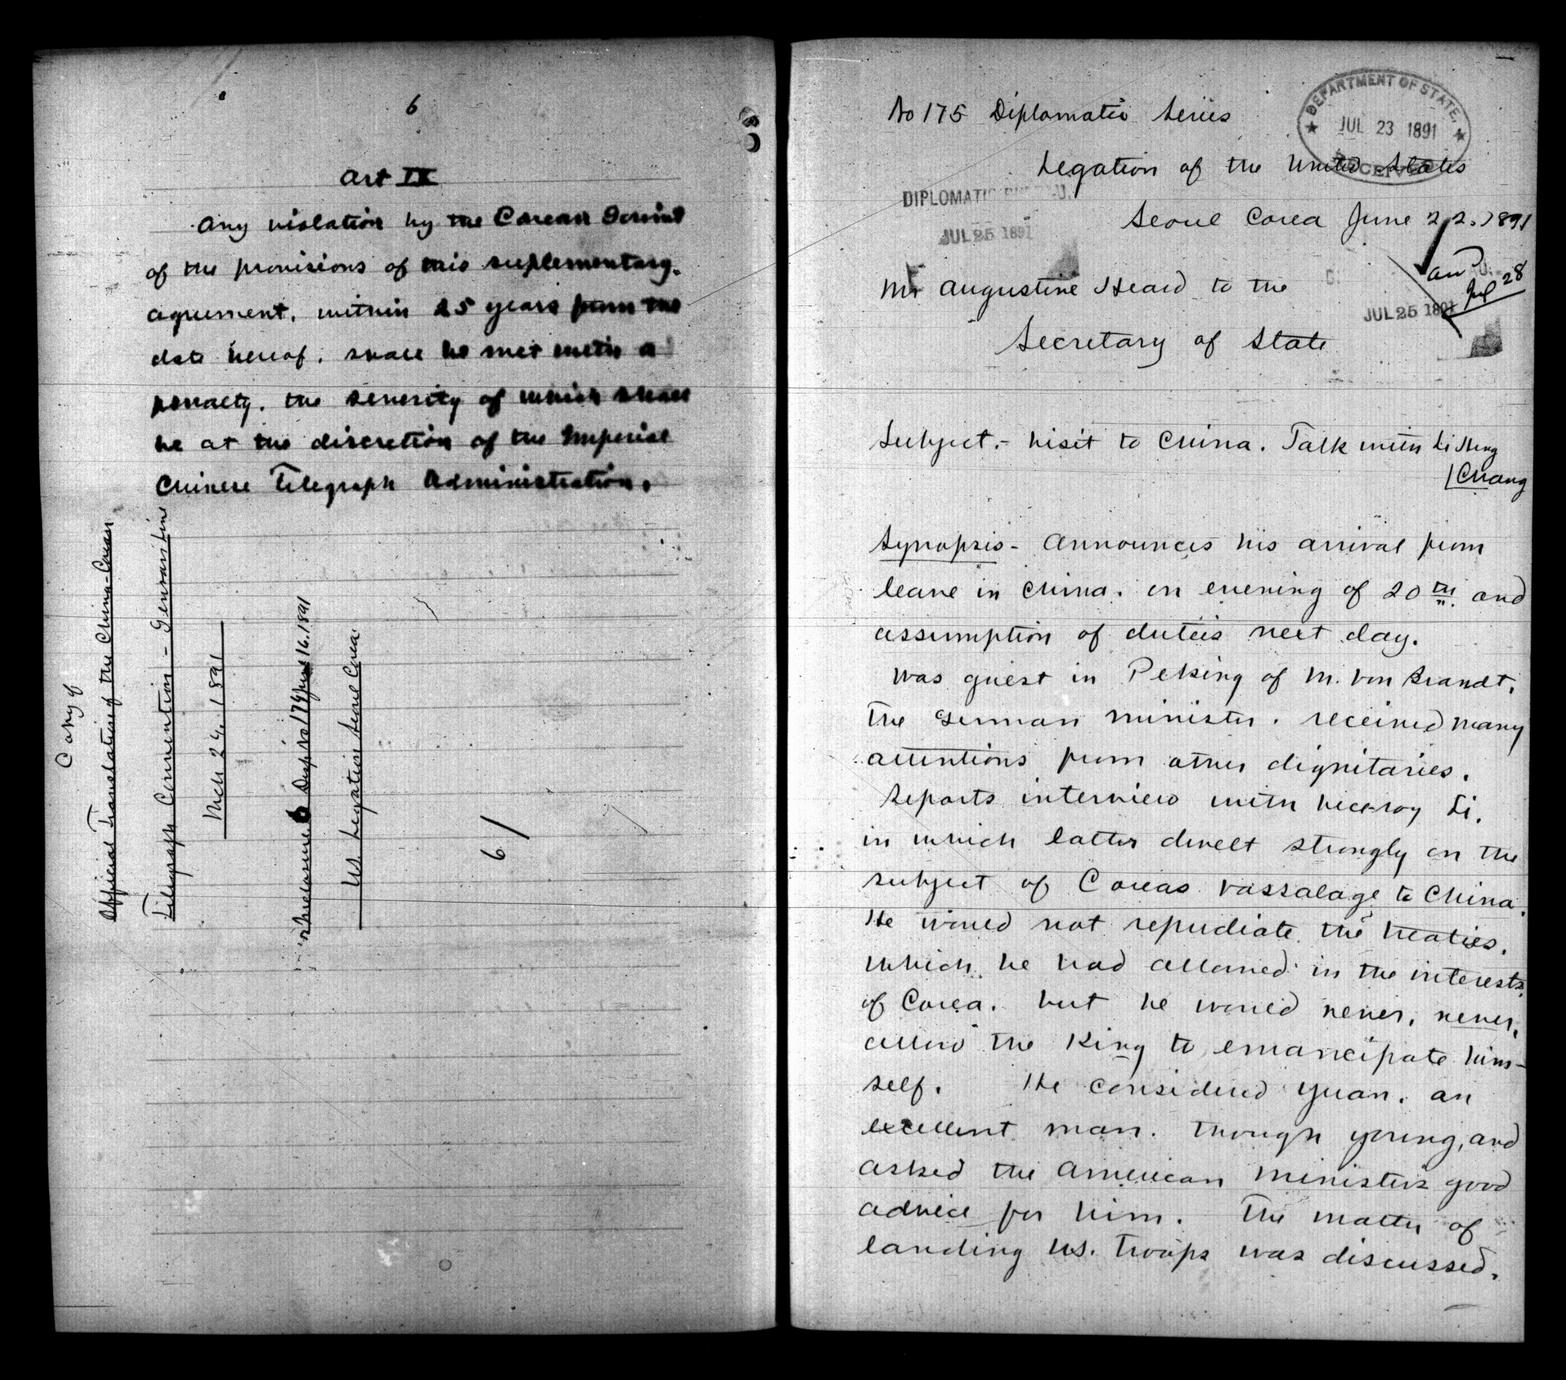 6
Art IX
Any violation by the Corean Govmt
of the provisions of this suplementary
agreement, within 25 years from the
date hereof, shall be met with a
penalty, the severity of which shall
be at the discretion of the Imperial
Chinese Telegraph Administration.
Copy of
Official Translation of the China-Corean
Telegraph Convention - Gensan Line
Mch 24, 1891
Inclosure 6 Disp No 174 June 16. 1891
US Legation Seoul Corea
6/
No 175 Diplomatic Series
DEPARTMENT OF STATE
JUL 23 1891
RECEIVED
Legation of the United States
DIPLOMATIC BUREAU.
JUL 25 1891
Seoul Corea June 22. 1891
Mr Augustine Heard to the
Jul 28
JUL 25 1891
Secretary of State
Subject.- Visit to China. Talk with Li Hung
Chang
Synopsis- Announces his arrival from
leave in China, on evening of 20th and
assumption of duties next day.
Was guest in Peking of M. von Brandt,
the German Minister. received many
attentions from other dignitaries.
Reports interview with Viceroy Li.
in which latter dwelt strongly on the
subject of Coreas vassalage to China.
He would not repudiate the treaties,
which he had allowed in the interests
of Corea, but he would never, never,
allow the King to emancipate him-
self. He considered Yuan, an
excellent man, though young, and
asked the American Ministers good
advice for him. The matter of
landing US. troops was discussed.